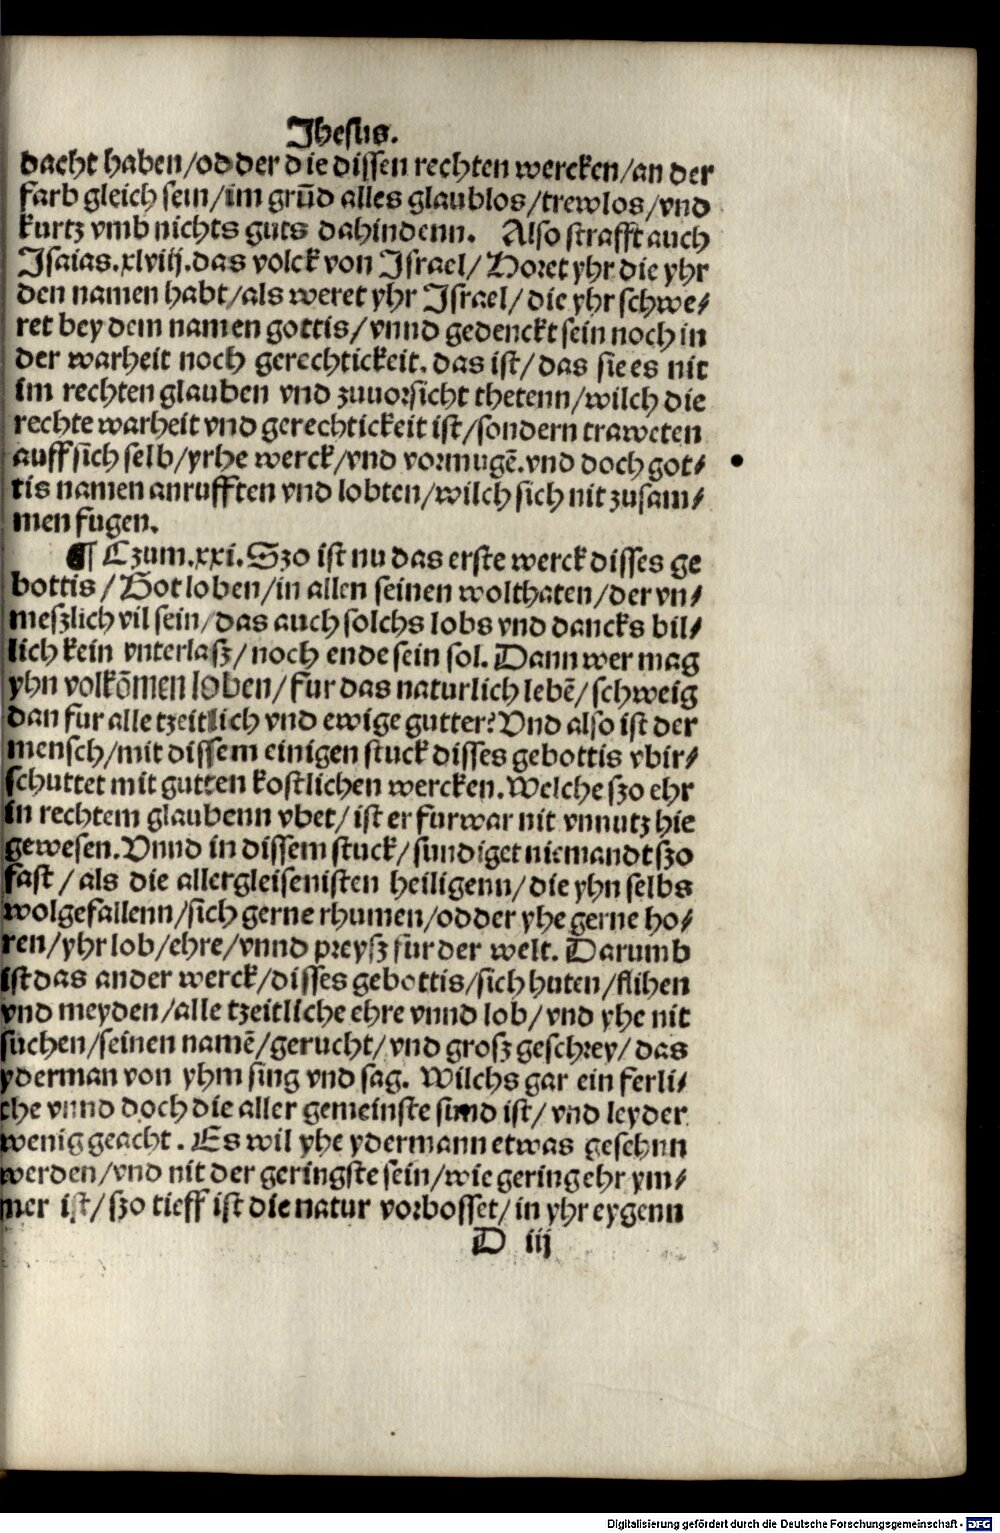 Jhesus.
dacht haben/odder die dissen rechten wercken/an der
farb gleich sein/im grũd alles glaublos/trewlos/vnd
kurtz vmb nichts guts dahindenn. Also strafft auch
Isaias.xlviij.das volck von Israel/Horet yhr die yhr
den namen habt/als weret yhr Israel/die yhr schwe/
ret bey dem namen gottis/vnnd gedenckt sein noch in
der warheit noch gerechtickeit. das ist/das sie es nit
im rechten glauben vnd zuuorsicht thetenn/wilch die
rechte warheit vnd gerechtickeit ist/sondern traweten
auff sich selb/yrhe werck/vnd vormugẽ.vnd doch got/
tis namen anrufften vnd lobten/wilch sich nit zusam/
men fugen.
¶ Czum.xxi.Szo ist nu das erste werck disses ge
bottis/Got loben/in allen seinen wolthaten/der vn/
meszlich vil sein/das auch solchs lobs vnd dancks bil/
lich kein vnterlasz/noch ende sein sol. Dann wer mag
yhn volkõmen loben/fur das naturlich lebẽ/schweig
dan fur alle tzeitlich vnd ewige gutter? Vnd also ist der
mensch/mit dissem einigen stuck disses gebottis vbir/
schuttet mit gutten kostlichen wercken. Welche szo ehr
in rechtem glaubenn vbet/ist er furwar nit vnnutz hie
gewesen. Vnnd in dissem stuck/sundiget niemandt szo
fast/als die allergleisenisten heiligenn/die yhn selbs
wolgefallenn/sich gerne rhumen/odder yhe gerne ho/
ren/yhr lob/ehre/vnnd preysz fur der welt. Darumb
ist das ander werck/disses gebottis/sich huten/flihen
vnd meyden/alle tzeitliche ehre vnnd lob/vnd yhe nit
suchen/seinen namẽ/gerucht/vnd grosz geschrey/das
yderman von yhm sing vnd sag. Wilchs gar ein ferli/
che vnnd doch die aller gemeinste sund ist/vnd leyder
wenig geacht. Es wil yhe ydermann etwas gesehnn
werden/vnd nit der geringste sein/wie gering ehr ym/
mer ist/szo tieff ist die natur vorbosset/in yhr eygenn
D iij
Digitalisierung gefördert durch die Deutsche Forschungsgemeinschaft - DFG